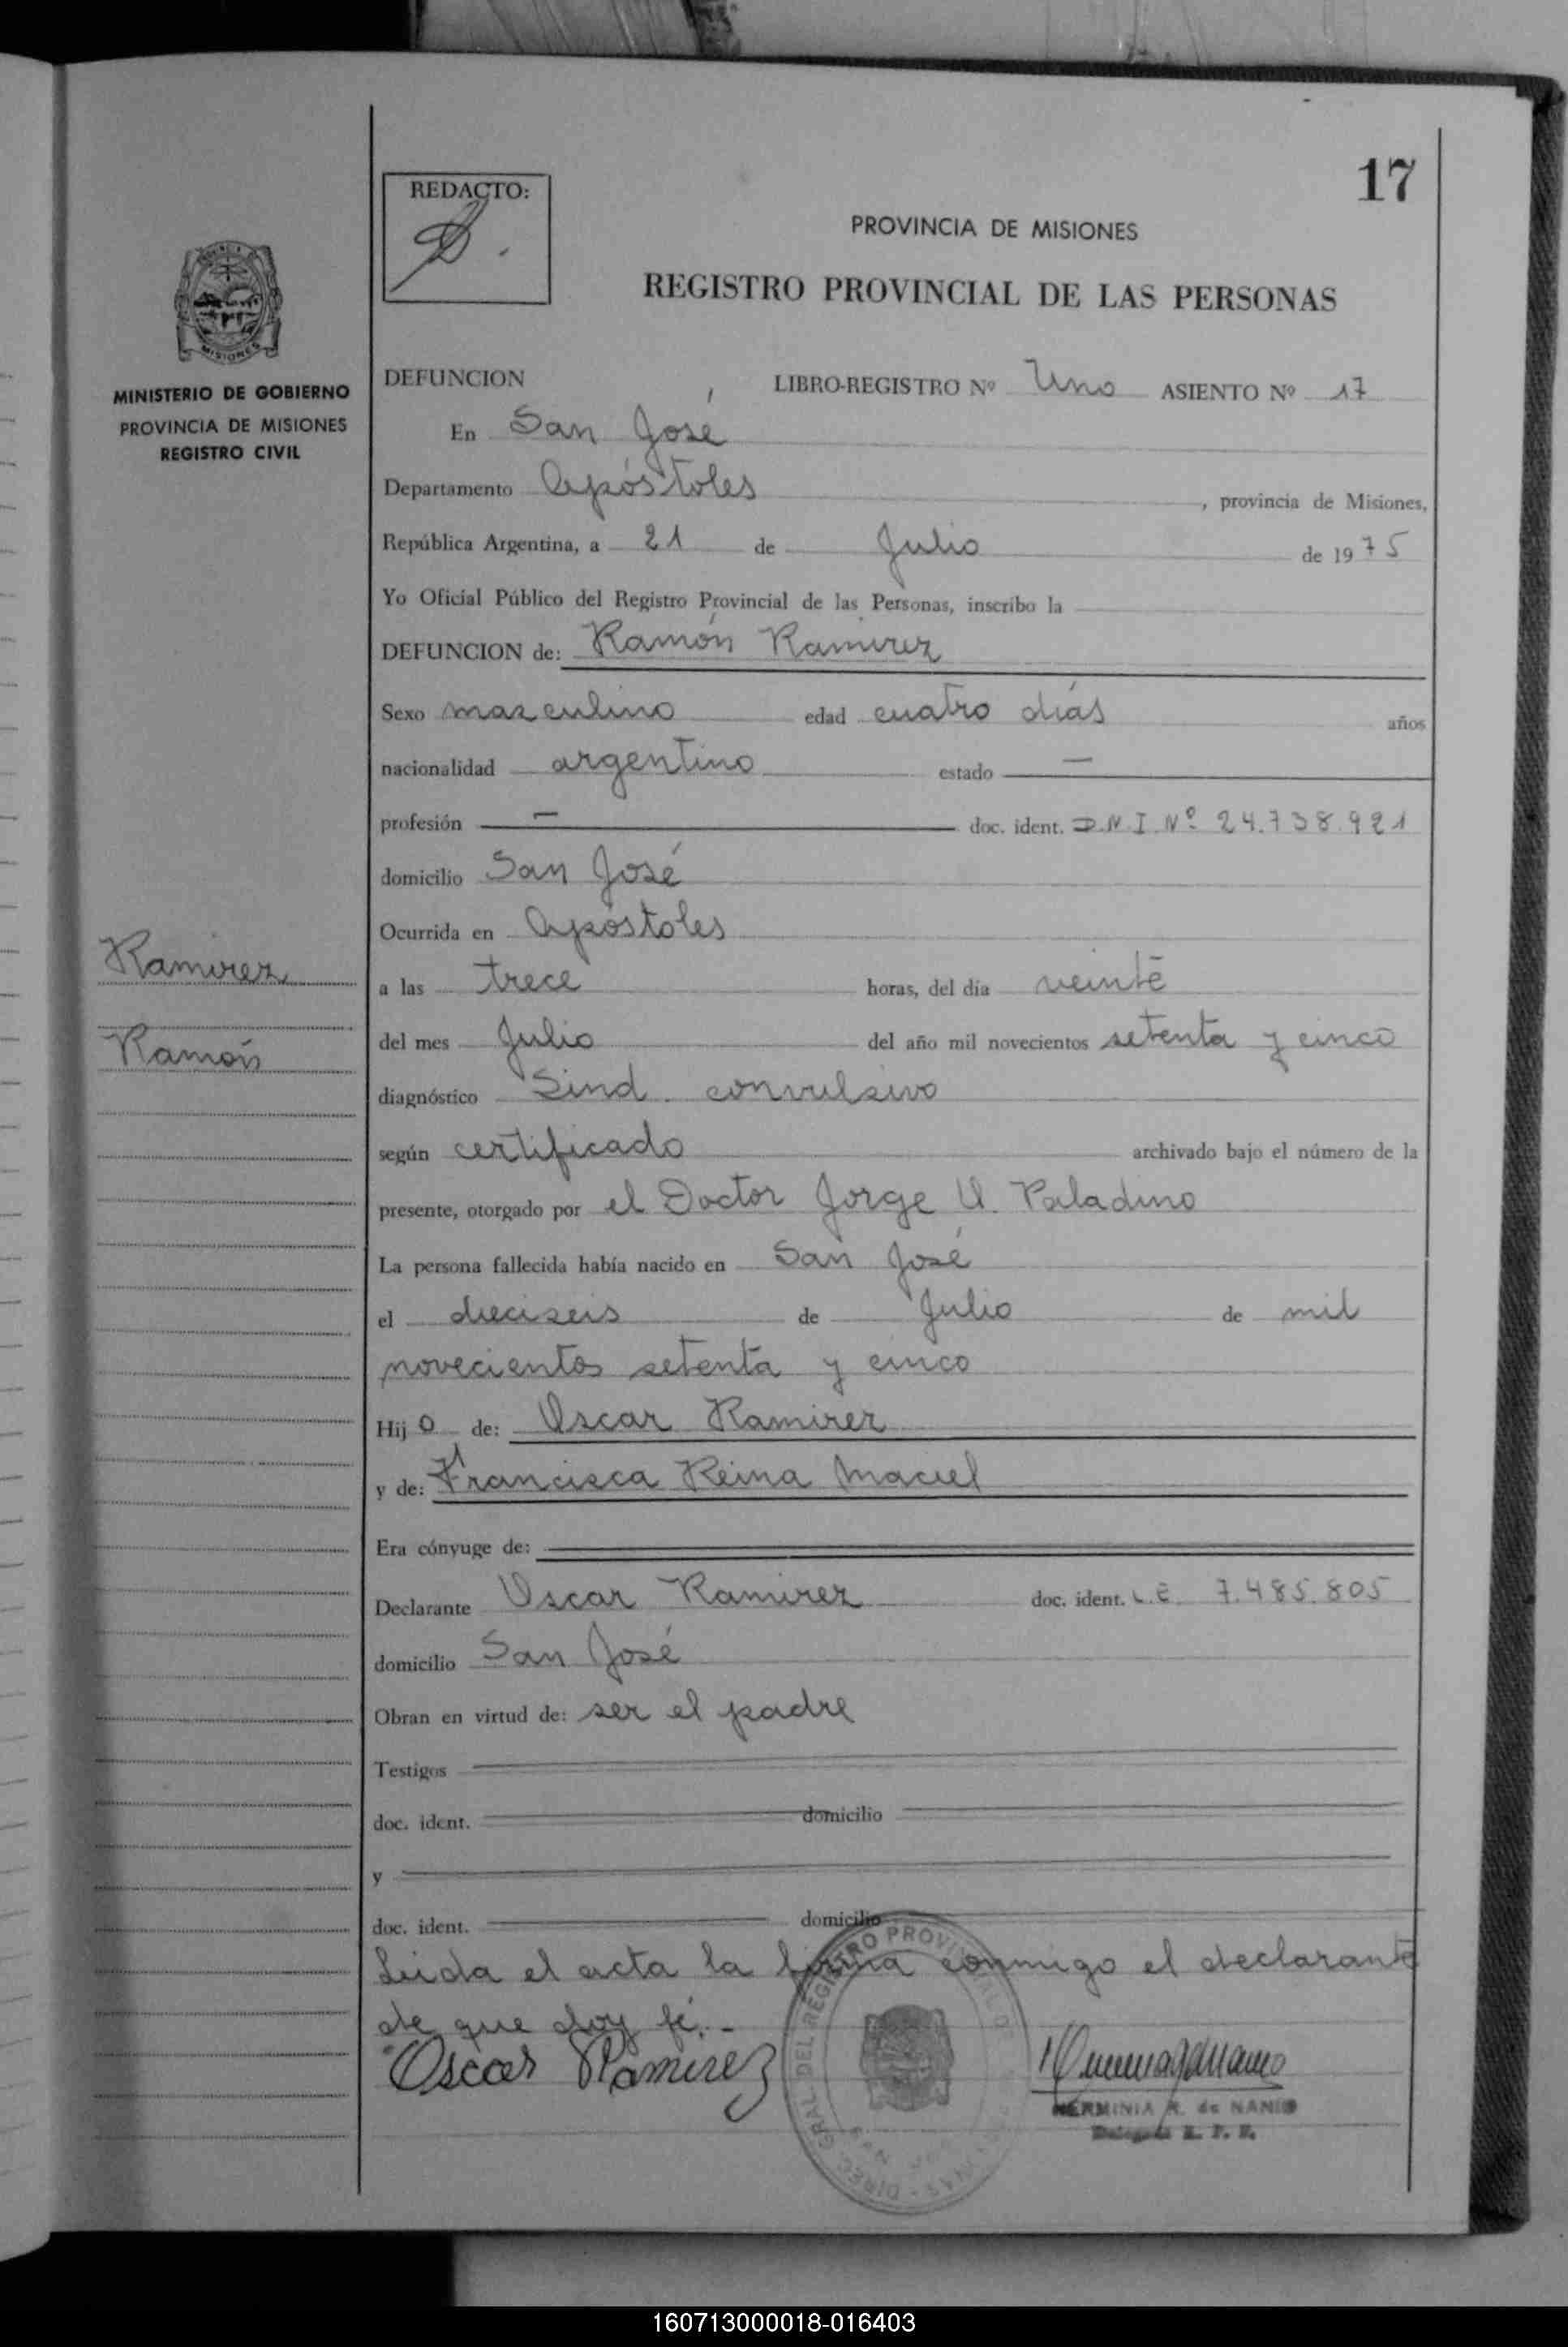 17
REDACTO:
PROVINCIA DE MISIONES
REGISTRO PROVINCIAL DE LAS PERSONAS
MISIONES
MINISTERIO DE GOBIERNO
PROVINCIA DE MISIONES
REGISTRO CIVIL
Ramirez
Ramón
DEFUNCION LIBRO-REGISTRO Nº Uno ASIENTO Nº 17
En San José
Departamento Apóstoles, provincia de Misiones,
República Argentina, a 21 de Julio de 1975
Yo Oficial Público del Registro Provincial de las Personas, inscribo la
DEFUNCION de: Ramón Ramirez
Sexo masculino edad cuatro días años
nacionalidad argentino estado —
profesión — doc. ident. D.N.I. Nº 24.738.921
domicilio San José
Ocurrida en Apóstoles
a las trece horas, del día veinte
del mes Julio del año mil novecientos setenta y cinco
diagnóstico Sind. convulsivo
según certificado archivado bajo el número de la
presente, otorgado por el Doctor Jorge U. Paladino
La persona fallecida había nacido en San José
el dieciseis de Julio de mil
novecientos setenta y cinco
Hijo de: Oscar Ramirez
y de: Francisca Reina Maciel
Era cónyuge de:
Declarante Oscar Ramirez doc. ident. L.E. 7.485.805
domicilio San José
Obran en virtud de: ser el padre
Testigos
doc. ident. domicilio
y
doc. ident. domicilio
Leida el acta la firma conmigo el declarante
de que doy fé.-
Oscar Ramirez
HERMINIA R. de
Delegada R. P. P.
DIREC. GRAL DEL REGISTRO PROVINCIAL DE
160713000018-016403